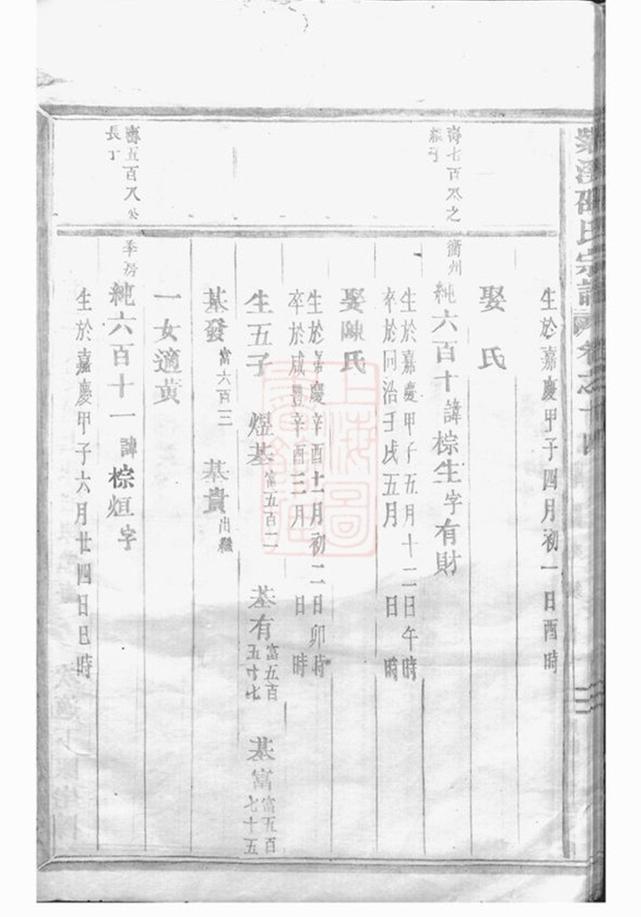 紫溪邵氏宗譜 卷之十四
生於嘉慶甲子四月初一日酉時
娶 氏
壽七百八之
繼子
衢州
純六百十 諱棕生字有財
生於嘉慶甲子五月十二日午時
卒於同治壬戌五月 日 時
娶陳氏
生於嘉慶辛酉十一月初二日卯時
卒於咸豐辛酉三月 日 時
生五子 煜基富五百二 基有富五百五十七 基富富五百七十五
基發富六百三 基貴出繼
一女適黃
壽五百八公
長丁
季房
純六百十一 諱棕烜字
生於嘉慶甲子六月廿四日巳時
上海圖